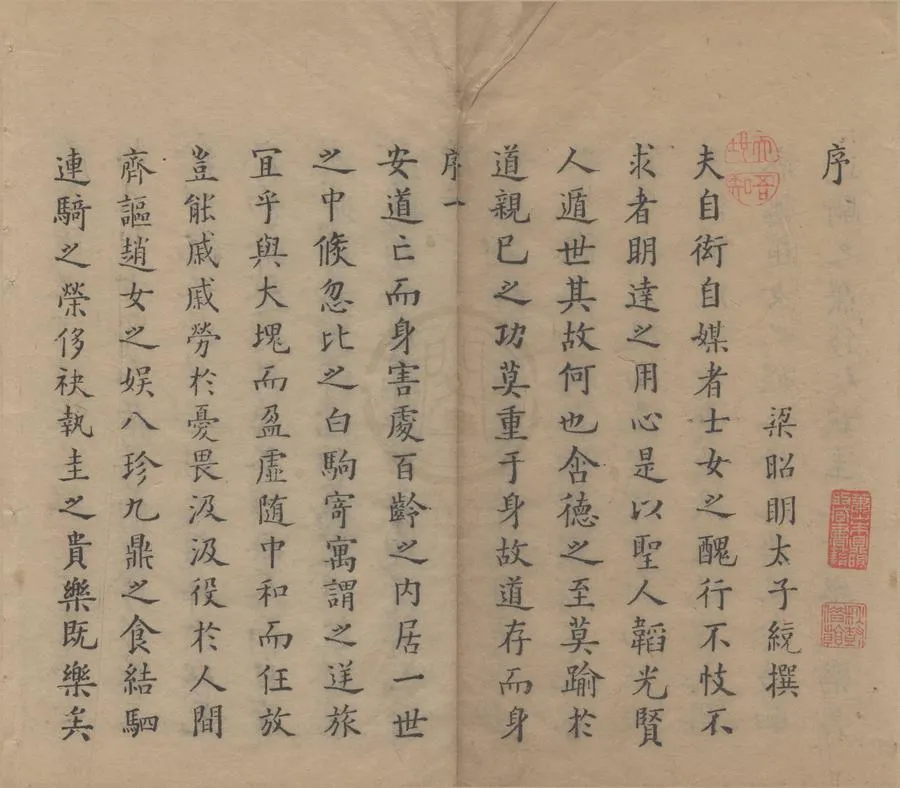 序
梁昭明太子統撰
夫自衒自媒者士女之醜行不忮不
求者明達之用心是以聖人韜光賢
人遁世其故何也含德之至莫踰於
道親已之功莫重于身故道存而身
序一
安道亡而身害處百齡之内居一世
之中倐忽比之白駒寄寓謂之逆旅
宜乎與大塊而盈虛随中和而任放
豈能戚戚勞於憂畏汲汲役於人間
齊謳趙女之娱八珍九鼎之食結駟
連騎之榮侈袂執圭之貴樂既樂矣